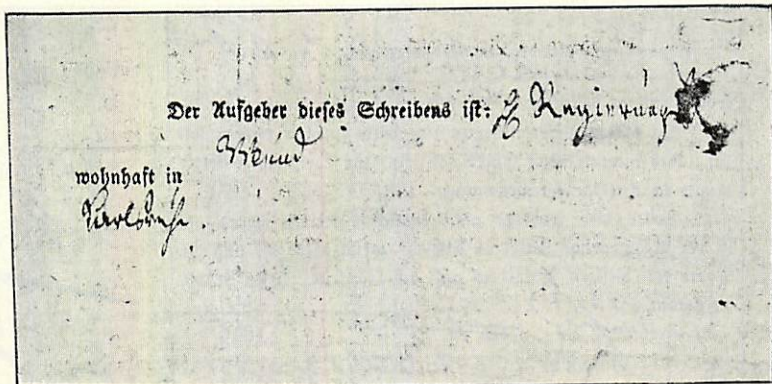 Der Aufgeber dieses Schreibens ist: Regierungs
wohnhaft in
Karlsruhe.